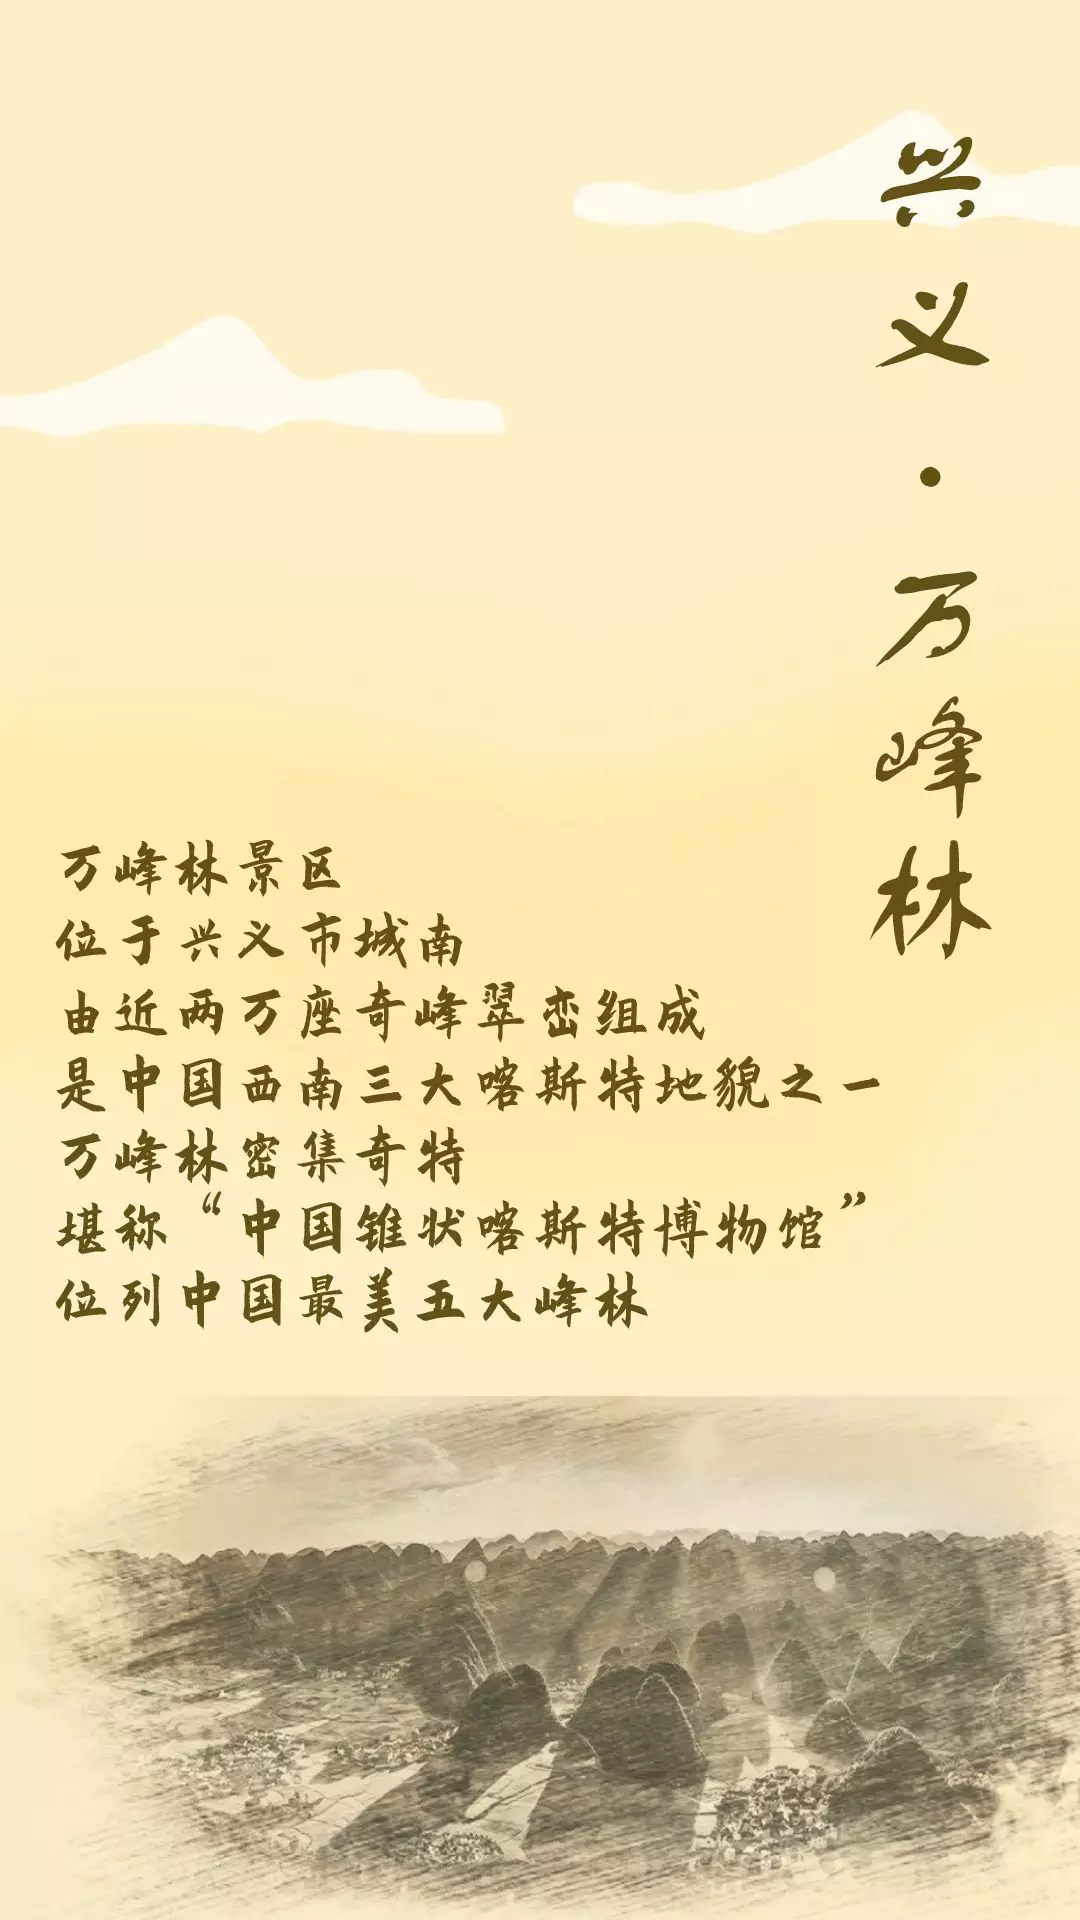 兴义·万峰林
万峰林景区
位于兴义市城南
由近两万座奇峰翠峦组成
是中国西南三大喀斯特地貌之一
万峰林密集奇特
堪称“中国锥状喀斯特博物馆”
位列中国最美五大峰林